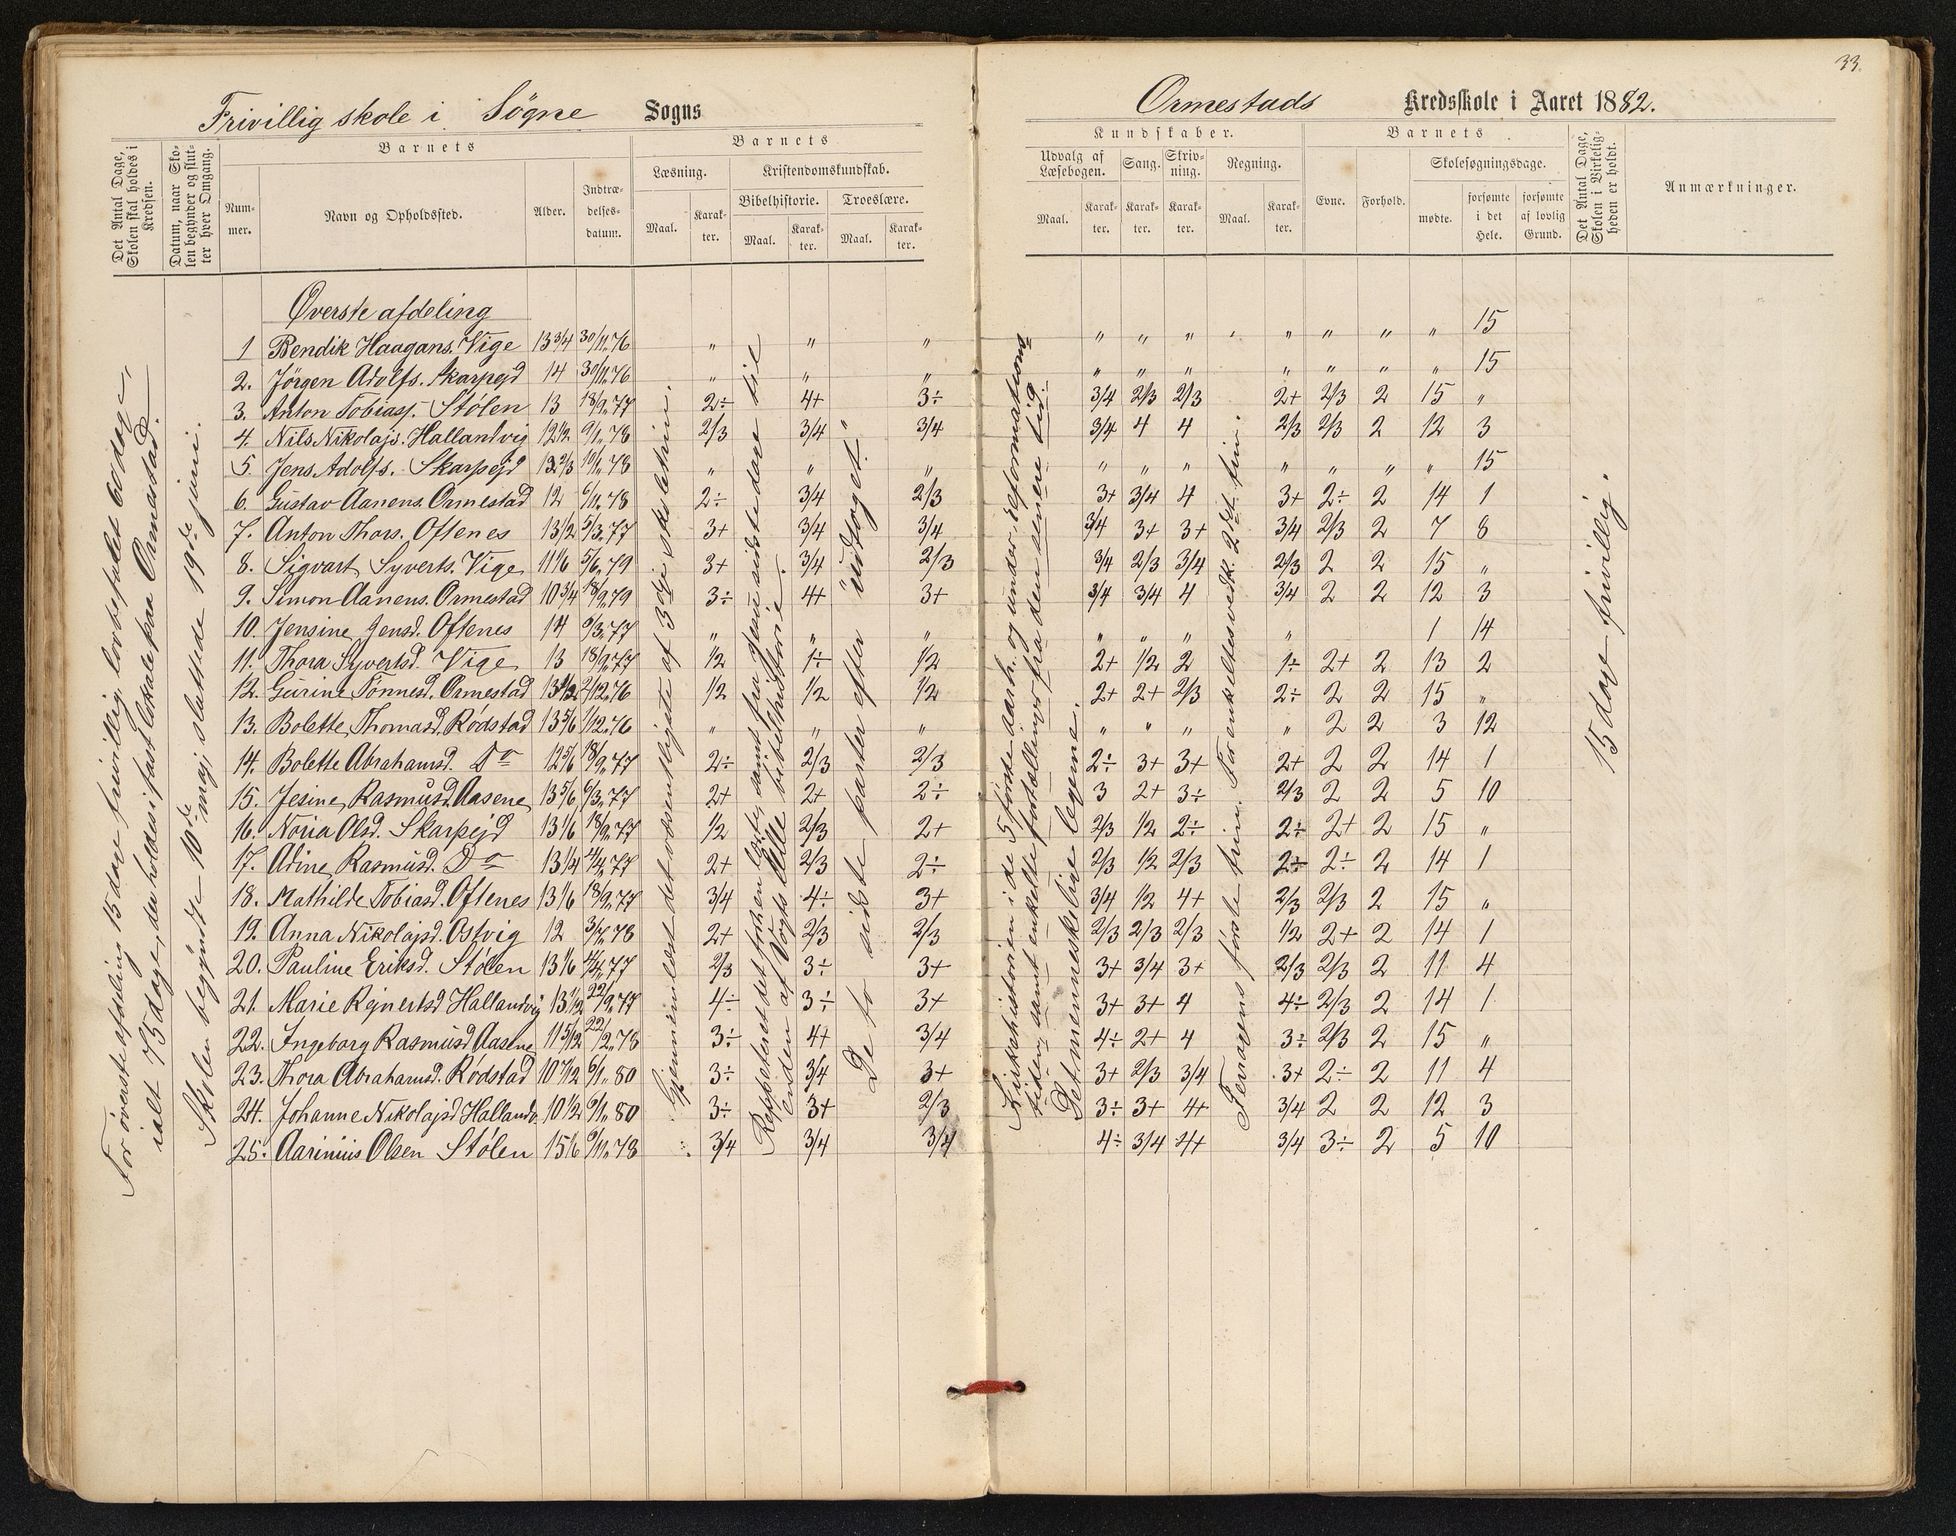 33.
Frivillig skole i Søgne Sogns
Ormestads Kredsskole i Aaret 1882.
Det Antal Dage, Skolen skal holdes i Kredsen.
Datum, naar Skolen begynder og slutter hver Omgang.
Barnets
Nummer.
Navn og Opholdssted.
Alder.
Indtrædelsesdatum.
Barnets
Læsning.
Kristendomskundskab.
Bibelhistorie.
Troeslære.
Maal. Karakter. Maal. Karakter. Maal. Karakter.
Kundskaber.
Udvalg af Læsebogen. Sang. Skrivning. Regning.
Maal. Karakter. Karakter. Karakter. Maal. Karakter.
Barnets
Evne. Forhold.
Skolesøgningsdage.
mødte. forsømte i det Hele. forsømte af lovlig Grund.
Det Antal Dage, Skolen i Virkeligheden er holdt.
Anmærkninger.
For øverste afdeling 15 dage frivillig, lovbefalet 60 dage,
ialt 75 dage, der holdes i fast lokale paa Ormestad.
Skolen begyndte 10de maj, sluttede 19de juni.
Øverste afdeling
1 Bendik Haagans. Vige 13 3/4 30/11.76 " " " " " " " " " " 15
2. Jörgen Adolfs. Skarpejd 14 30/11.76 " " " " " " " " " " 15
3. Anton Tobiass. Stölen 13 18/9.77 2÷ 4+ 3÷ 3/4 2/3 2/3 2+ 2/3 2 15 "
4. Nils Nikolajs. Hallandvig 12 1/2 9/1.78 2/3 3/4 3/4 3/4 4 4 2/3 2/3 2 12 3
5. Jens Adolfs. Skarpejd 12 2/3 10/1.78 " " " " " " " " " " 15
6. Gustav Aanens. Ormestad 12 6/11.78 2÷ 3/4 2/3 3+ 3/4 4 3+ 2÷ 2 14 1
7. Anton Thors. Oftenes 13 1/2 5/3.77 3+ 3/4 3/4 3/4 3+ 3+ 3/4 2/3 2 7 8
8. Sigvart Syverts. Vige 11 1/6 5/6.79 3+ 3/4 2/3 3/4 2/3 3/4 2/3 2 2 15 "
9. Simon Aanens. Ormestad 10 3/4 18/9.79 3÷ 4+ 3+ 3/4 3/4 4 3/4 2 2 12 3
10. Jensine Jensd. Oftenes 14 6/3.77 " " " " " " " 1 14
11. Thora Syvertsd. Vige 13 18/9.77 1/2 1÷ 1/2 2+ 1/2 2 1÷ 2+ 2 13 2
12. Gurine Tönnesd. Ormestad 13 1/2 2/12.76 1/2 1/2 1/2 2+ 2+ 2/3 2÷ 2 2 15 "
13. Bolette Thomasd. Rödstad 13 5/6 1/12.76 " " " " " " " 2 2 3 12
14. Bolette Abrahamsd. Do 12 5/6 18/9.77 2÷ 2/3 2/3 2÷ 3+ 3+ 2+ 2 2 14 1
15. Jesine Rasmusd. Aasene 13 5/6 6/3.77 2+ 2+ 2÷ 3 2+ 3÷ 2/3 2 2 5 10
16. Noria Olsd. Skarpejd 13 1/6 18/9.77 1/2 2/3 2+ 2/3 1/2 2÷ 2÷ 2+ 2 15 "
17. Adine Rasmusd. Do 13 1/4 4/4.77 2+ 2/3 2÷ 2/3 1/2 2/3 2÷ 2÷ 2 14 1
18. Mathilde Tobiasd. Oftenes 13 1/6 18/9.77 3/4 4÷ 3+ 3/4 1/2 4+ 2/3 2/3 2 15 "
19. Anna Nikolajsd. Ostvig 12 3/7.78 2+ 2/3 2/3 2/3 2/3 2/3 1/2 2+ 2 14 1
20. Pauline Eriksd. Stölen 13 1/6 4/4.77 2/3 3÷ 3+ 3+ 3/4 3+ 2/3 2/3 2 11 4
21. Marie Rejnertsd Hallandvig 13 1/2 22/9.77 4÷ 3÷ 3+ 3+ 3+ 4 4÷ 2/3 2 14 1
22. Ingeborg Rasmusd Aasene 11 5/12 22/2.78 3÷ 4+ 3/4 4÷ 2+ 4 3÷ 2/3 2 15 "
23. Thora Abrahamsd. Rödstad 10 7/12 6/1.80 3÷ 3/4 3+ 3+ 2/3 3/4 3+ 2÷ 2 11 4
24. Johanne Nikolajsd Hallandv. 10 1/2 6/1.80 3÷ 3+ 2/3 3÷ 3+ 4+ 3/4 2 2 12 3
25. Aarinius Olsen Stölen 15 1/6 6/11.78 3/4 3/4 3/4 4÷ 3/4 4+ 3/4 3÷ 2 5 10
Gjennemlæst det væsentligste af 3die skoletrin.
Repeteret det forhen læste, samt fra Jesu sidste dage til
enden af Vogts lille bibelhistorie.
De to sidste parter efter "Udtoget".
Kirkehistorien i de 5 første aarh. og under reformations=
tiden, samt enkelte fortællinger fra den senere tid.
Det menneskelige legeme.
Ferragens første trin. For enkeltes vedk. 2det trin.
15 dage frivillig.